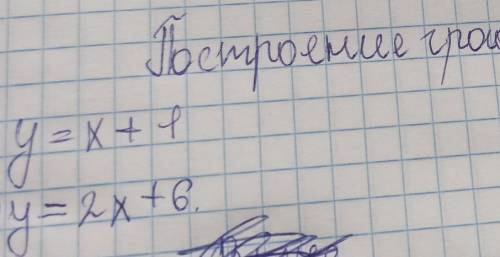 Построение гра
y = x + 1
y = 2x + 6.